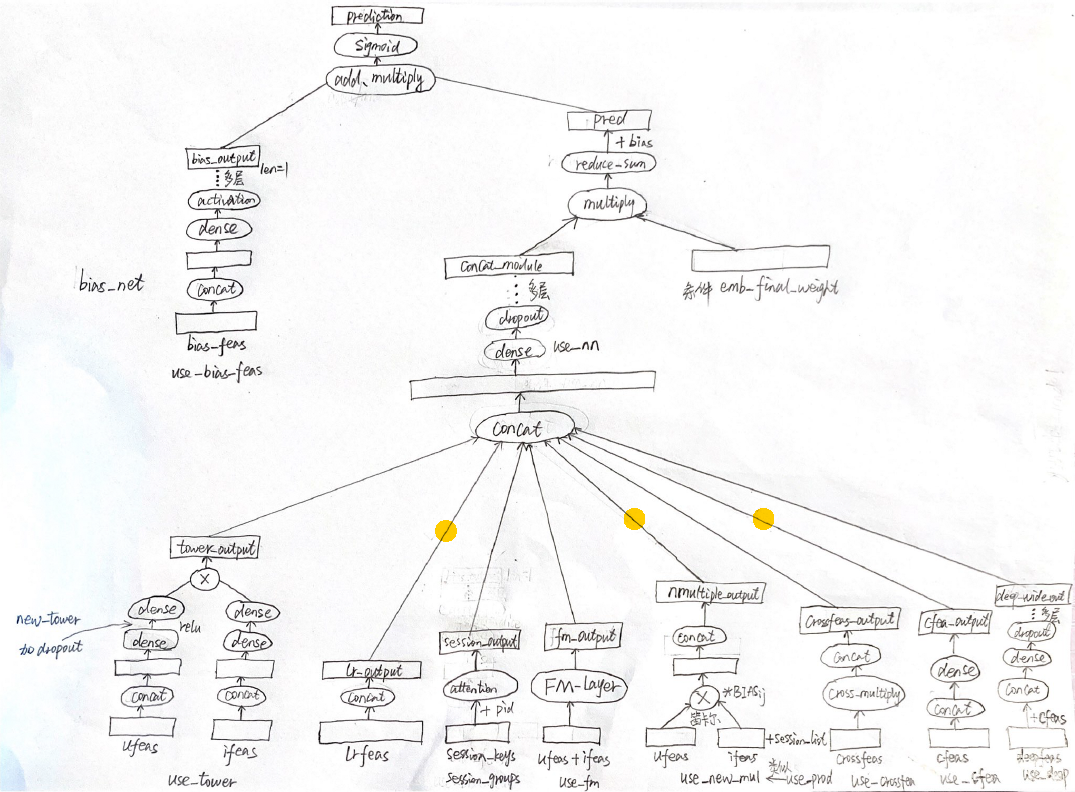 prediction
Sigmoid
add、multiply
pred
+ bias
reduce-sum
multiply
bias_output
len=1
多层
activation
dense
concat
bias_net
bias-feas
use-bias-feas
Concat_module
多层
dropout
dense
use_nn
条件 emb_final_weight
concat
tower_output
X
dense
dense
relu
concat
ufeas
dense
dense
concat
ifeas
use_tower
new-tower
加dropout
lr-output
concat
lrfeas
session_output
attention
+ pid
session_keys
session_groups
fm_output
FM-Layer
ufeas+ifeas
use_fm
nmultiple_output
concat
X
*BIASij
ufeas
ifeas
+session_list
use_new_mul
类似
use_prod
Crossfeas-output
concat
Cross-multiply
Crossfeas
use-crossfea
Cfea-output
dense
concat
cfeas
use_cfea
deep-wide_out
多层
dropout
dense
concat
+cfeas
deepfeas
use_deep